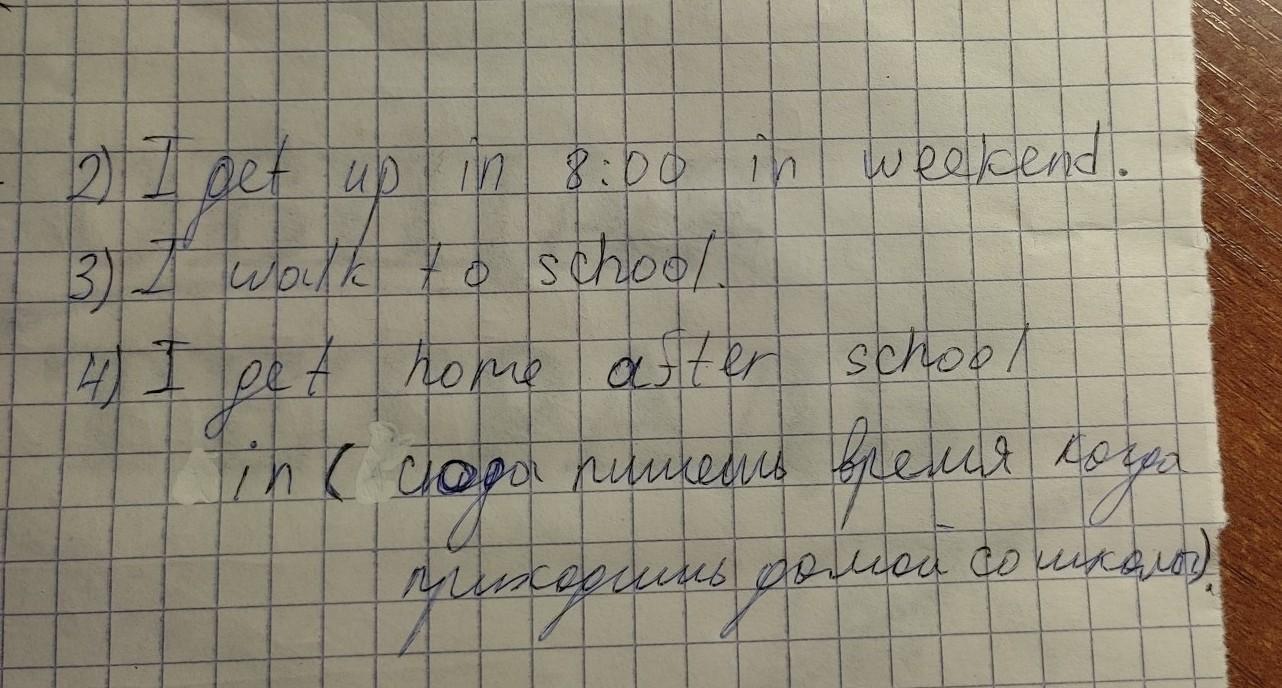 2) I get up in 8:00 in weekend.
3) I walk to school.
4) I get home after school
in ( сюда пишешь время когда
приходишь домой со школы).